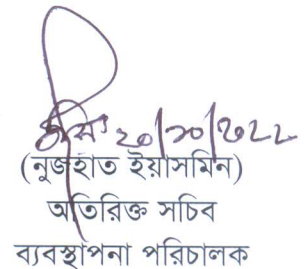 ২০/১০/২০২২
(নুজহাত ইয়াসমিন)
অতিরিক্ত সচিব
ব্যবস্থাপনা পরিচালক